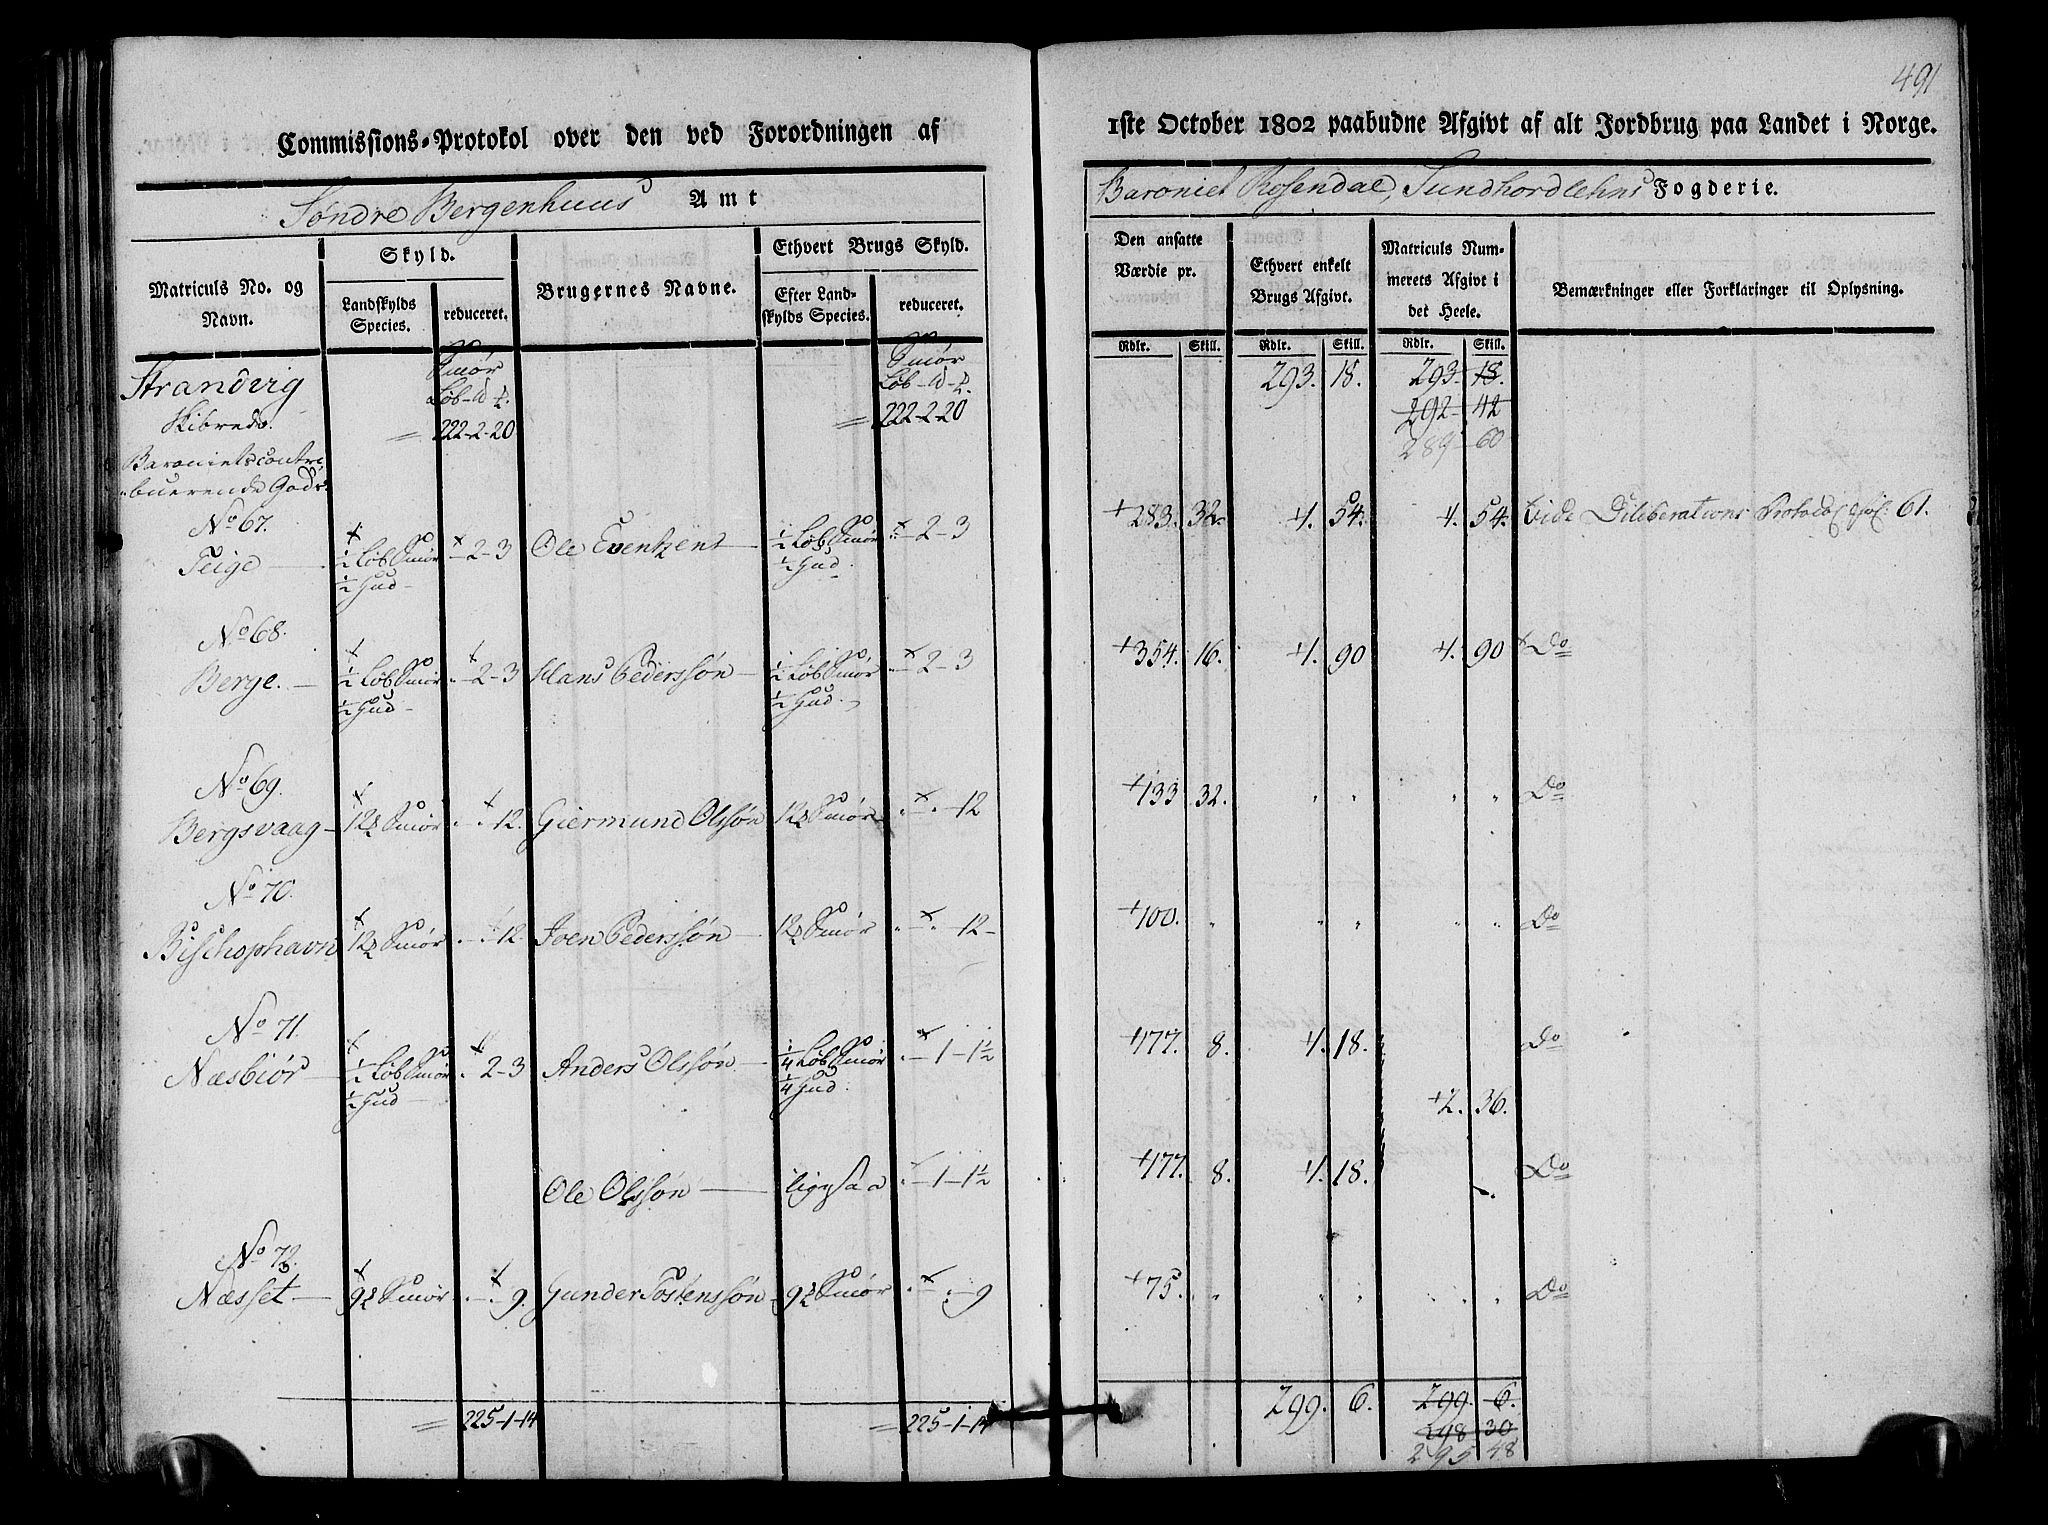 491
Commissions-Protokol over den ved Forordningen af
1ste October 1802 paabudne Afgivt af alt Jordbrug paa Landet i Norge.
Søndre Bergenhuus Amt
Baroniet Rosendal, Sundhordlehns Fogderie.
Matriculs No. og Navn.
Skyld.
Landskylds Species.
reduceret.
Brugernes Navne.
Ethvert Brugs Skyld.
Efter Landskylds Species.
reduceret.
Den ansatte Værdie pr.
Ethvert enkelt Brugs Afgivt.
Matriculs Nummerets Afgivt i det Heele.
Bemærkninger eller Forklaringer til Oplysning.
Rdlr. Skill. Rdlr. Skill. Rdlr. Skill.
Strandvig Smør Smør 293. 18. 293. 18.
Skibrede. 222-2-20 = 222-2-20 292 42
289 60
Baroniets contri-
buerende Gods.
No 67.
Teige — ½ Løb Smør - 2-3 Ole Evenhens ½ Løb Smør - 2-3 +283. 32. 4. 54. 4. 54. Vide Deliberations Protocol 61.
½ Hud ½ Hud
No 68.
Berge. — ½ Løb Smør - 2-3 Hans Pederssøn — ½ Løb Smør - 2-3 +354. 16. 4. 90 4. 90 Do
½ Hud ½ Hud.
No 69.
Bergsvaag — 12 Smør - 12. Giermund Olssøn 12 Smør - 12 +133 32. " " " " Do
No 70.
Bischophavn 12 Smør - 12 Joen Pederssøn — 12 Smør - 12 - +100. " " " " " Do
No 71.
Næsbiør — ½ Løb Smør 2-3 Anders Olssøn — ¼ Løb Smør - 1 - 1½ +177. 8. 4. 18. Do
½ Hud ¼ Hud.
+2. 36.
Ole Olssøn — ligesaa - 1 - 1½ +177. 8. 4. 18. Do
No 72.
Næsset — 9 Smør - 9. Gunder Tostenssøn 9 Smør - 9 +75. " " " " " Do
= 225-1-14 = 225-1-14 299. 6. 299. 6.
298 30
295 48